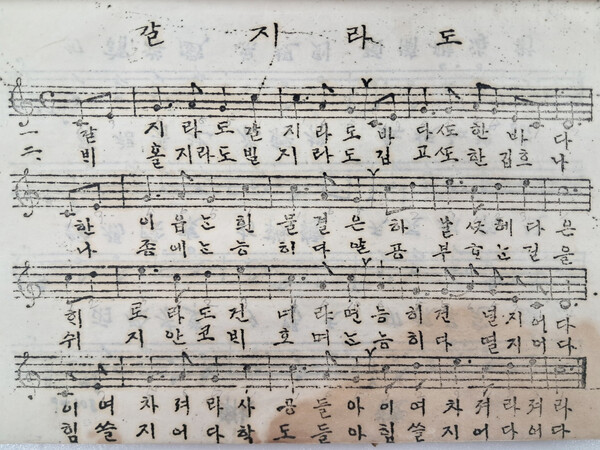 갈 지 라 도
一、갈 지 라 도 갈 지 라 도 바 다 도 한 바 다
二、비 록 지 라 도 빌 지 라 도 깁 고 도 한 깁흐 나
한 이 읍 는 흰 물 결 은 하 날 셋 헤 다 은
나 좀 에 는 능 히 다 말 공 부 호 는 길 을
회 로 라 도 건 너 라 면 능 히 건 널 지 어 다
쉬 지 안 코 비 호 며 는 능 히 다 떨 지 어 다
이 여 차 져 라 사 공 들 아 이 여 차 져 라 져 라
힘 쓸 지 어 다 학 도 들 아 힘 쓸 지 어 다 어 다